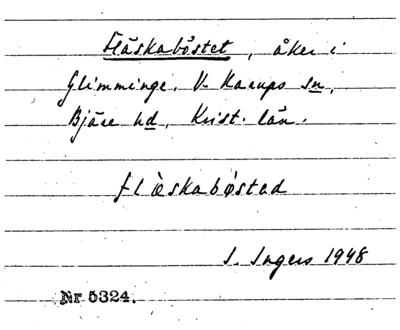 Fläskabåstet, åker i
Glimminge, V. Karups sn,
Bjäre hd, Krist. län.
flèskabǿstad
I. Ingers 1948
Nr 5324.